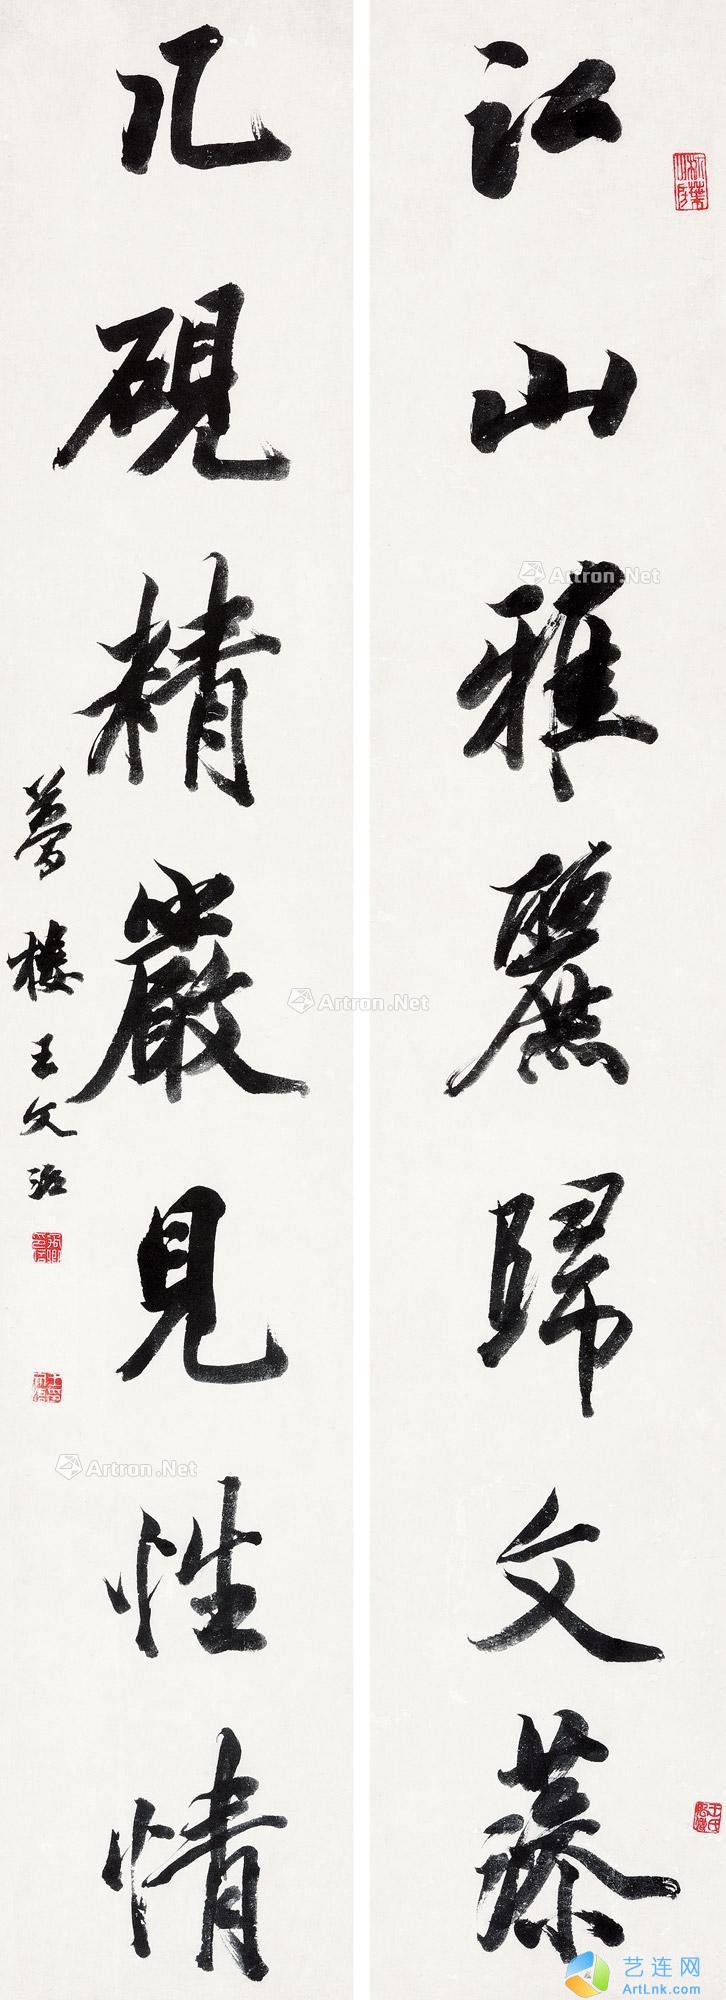 江山雅麗歸文藻
几硯精嚴見性情
夢樓王文治
Artron.Net
Artron.Net
Artron.Net
艺连网
ArtLnk.com